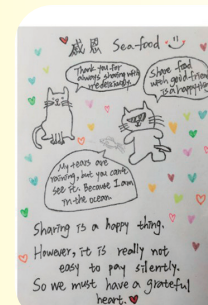 感恩 Sea-food
Thank you for
always sharing with
me deliciously.
Share food
with good friend
is a happy thing
My tears are
raining, but you can't
see it. Because I am
in the ocean
Sharing is a happy thing.
However, it is really not
easy to pay silently.
So we must have a grateful
heart.